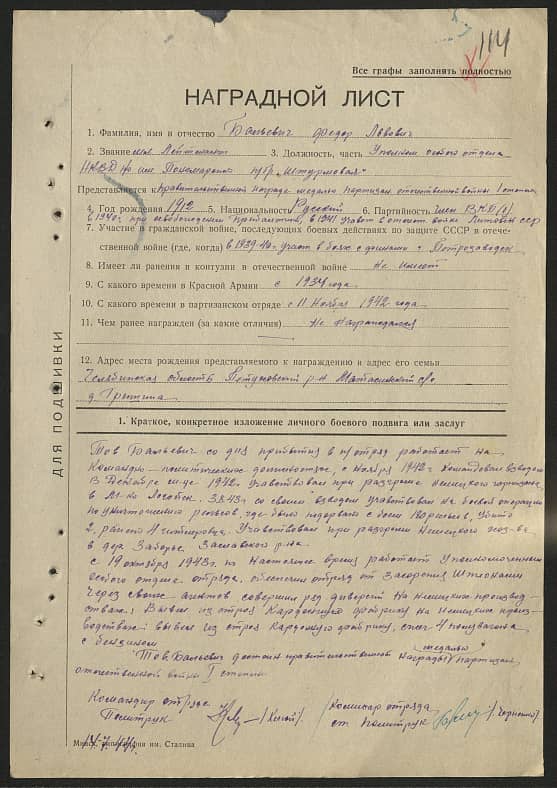 114
Все графы заполнять полностью
НАГРАДНОЙ ЛИСТ
1. Фамилия, имя и отчество Бальевич Федор Львович
2. Звание мл Лейтенант 3. Должность, часть Уполном особого отдела
НКВД по им Пономаренко п/р „Штурмовая"
Представляется к правительственной награде медаль партизан отечественной войны I степени
4. Год рождения 1912 5. Национальность Русский 6. Партийность член ВКП(б)
в 1940г при освобождении Прибалтики, в 1941 участв в отечест войне Литовск ССР
7. Участие в гражданской войне, последующих боевых действиях по защите СССР в отече-
ственной войне (где, когда) в 1939-40г. участв в боях с финнами г Петрозаводск
8. Имеет ли ранения и контузии в отечественной войне не имеет
9. С какого времени в Красной Армии с 1934 года
10. С какого времени в партизанском отряде с 11 Ноября 1942 года
11. Чем ранее награжден (за какие отличия) Не награждался
12. Адрес места рождения представляемого к награждению и адрес его семьи
Челябинская область р-н с/с
д.
ДЛЯ ПОДШИВКИ
1. Краткое, конкретное изложение личного боевого подвига или заслуг
Тов Бальевич со дня прибытия в п/отряд работает на
Командно-политические должностях, с Ноября 1942г командовал взводом
В Декабре м-це 1942г. Участвовал при разгроме немецкого гарнизона
в м-ко Логойск. 3.8.43г со своим взводом участвовал на боевой операции
по уничтожению рельсов, где было подорвано с боем рельсы, убито
2, ранено 4 гитлеровца. Участвовал при разгроме Немецкого хоз-ва
в дер Заболье Заславского р-на
с 19 октября 1943г. по Настоящее время работает Уполномоченным
особого отдела отряда, обеспечил отряд от Засорения Шпионами
Через своих агентов совершил ряд диверсий На немецких производ-
ствах: Вывел из строя Кардонную фабрику на немецких произ-
водствах: вывел из строя Кардонную фабрику, сжег 4 полувагона
с бензином.
Тов. Бальевич достоин правительственной награды медалью Партизан
отечественной войны I степени
Командир отряда
Политрук
Комиссар отряда
ст политрук
Минск, типография им. Сталина